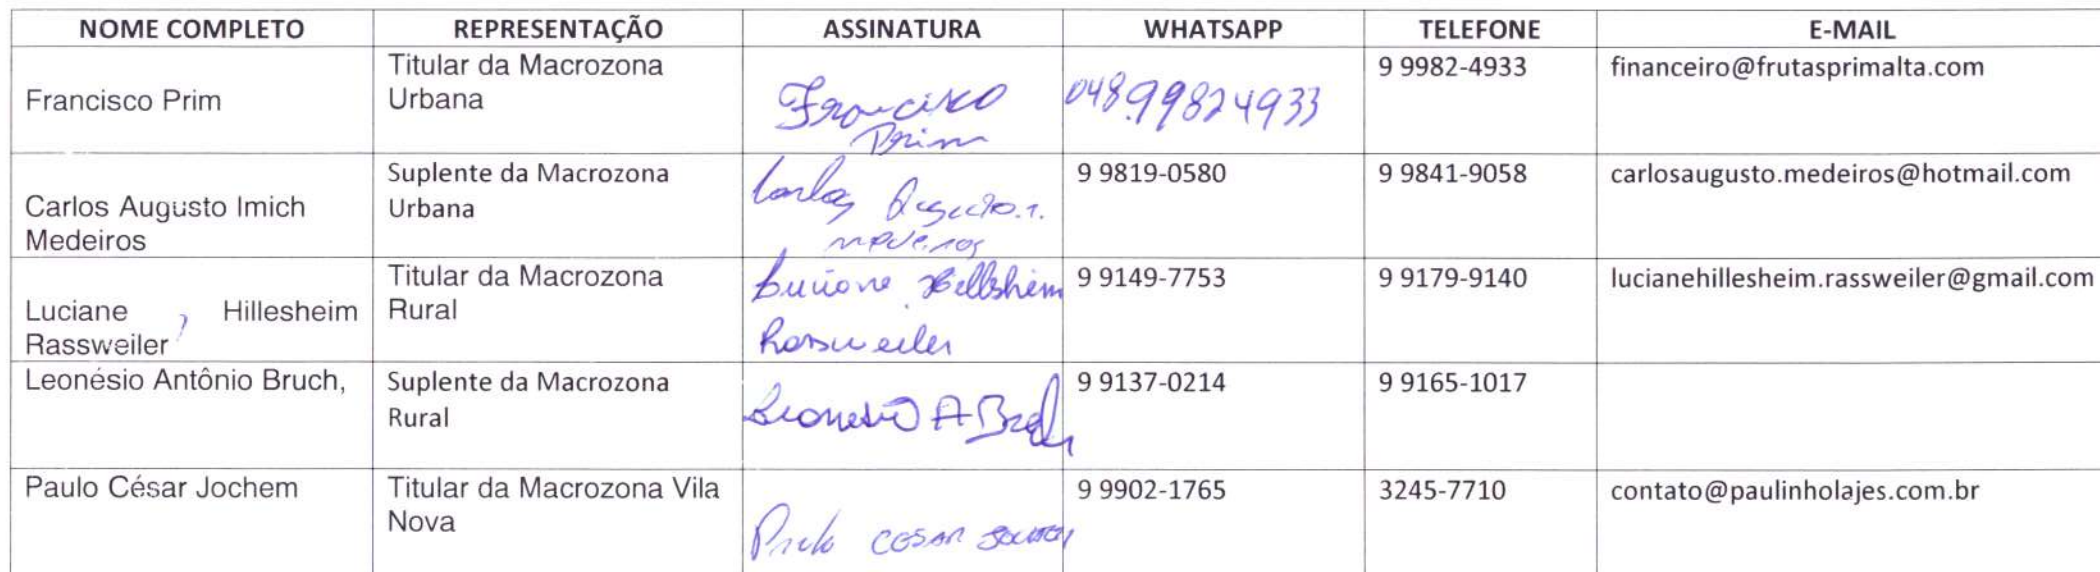 NOME COMPLETO REPRESENTAÇÃO ASSINATURA WHATSAPP TELEFONE E-MAIL
Francisco Prim
Titular da Macrozona
Urbana
Francisco
Prim
048.99824933
9 9982-4933
financeiro@frutasprimalta.com
Carlos Augusto Imich
Medeiros
Suplente da Macrozona
Urbana
Carlos Augusto.I.
medeiros
9 9819-0580
9 9841-9058
carlosaugusto.medeiros@hotmail.com
Luciane Hillesheim
Rassweiler
Titular da Macrozona
Rural
Luciane Hillesheim
Rassweiler
9 9149-7753
9 9179-9140
lucianehillesheim.rassweiler@gmail.com
Leonésio Antônio Bruch,
Suplente da Macrozona
Rural
Leonesio A Bruch
9 9137-0214
9 9165-1017
Paulo César Jochem
Titular da Macrozona Vila
Nova
Paulo CESAR
9 9902-1765
3245-7710
contato@paulinholajes.com.br